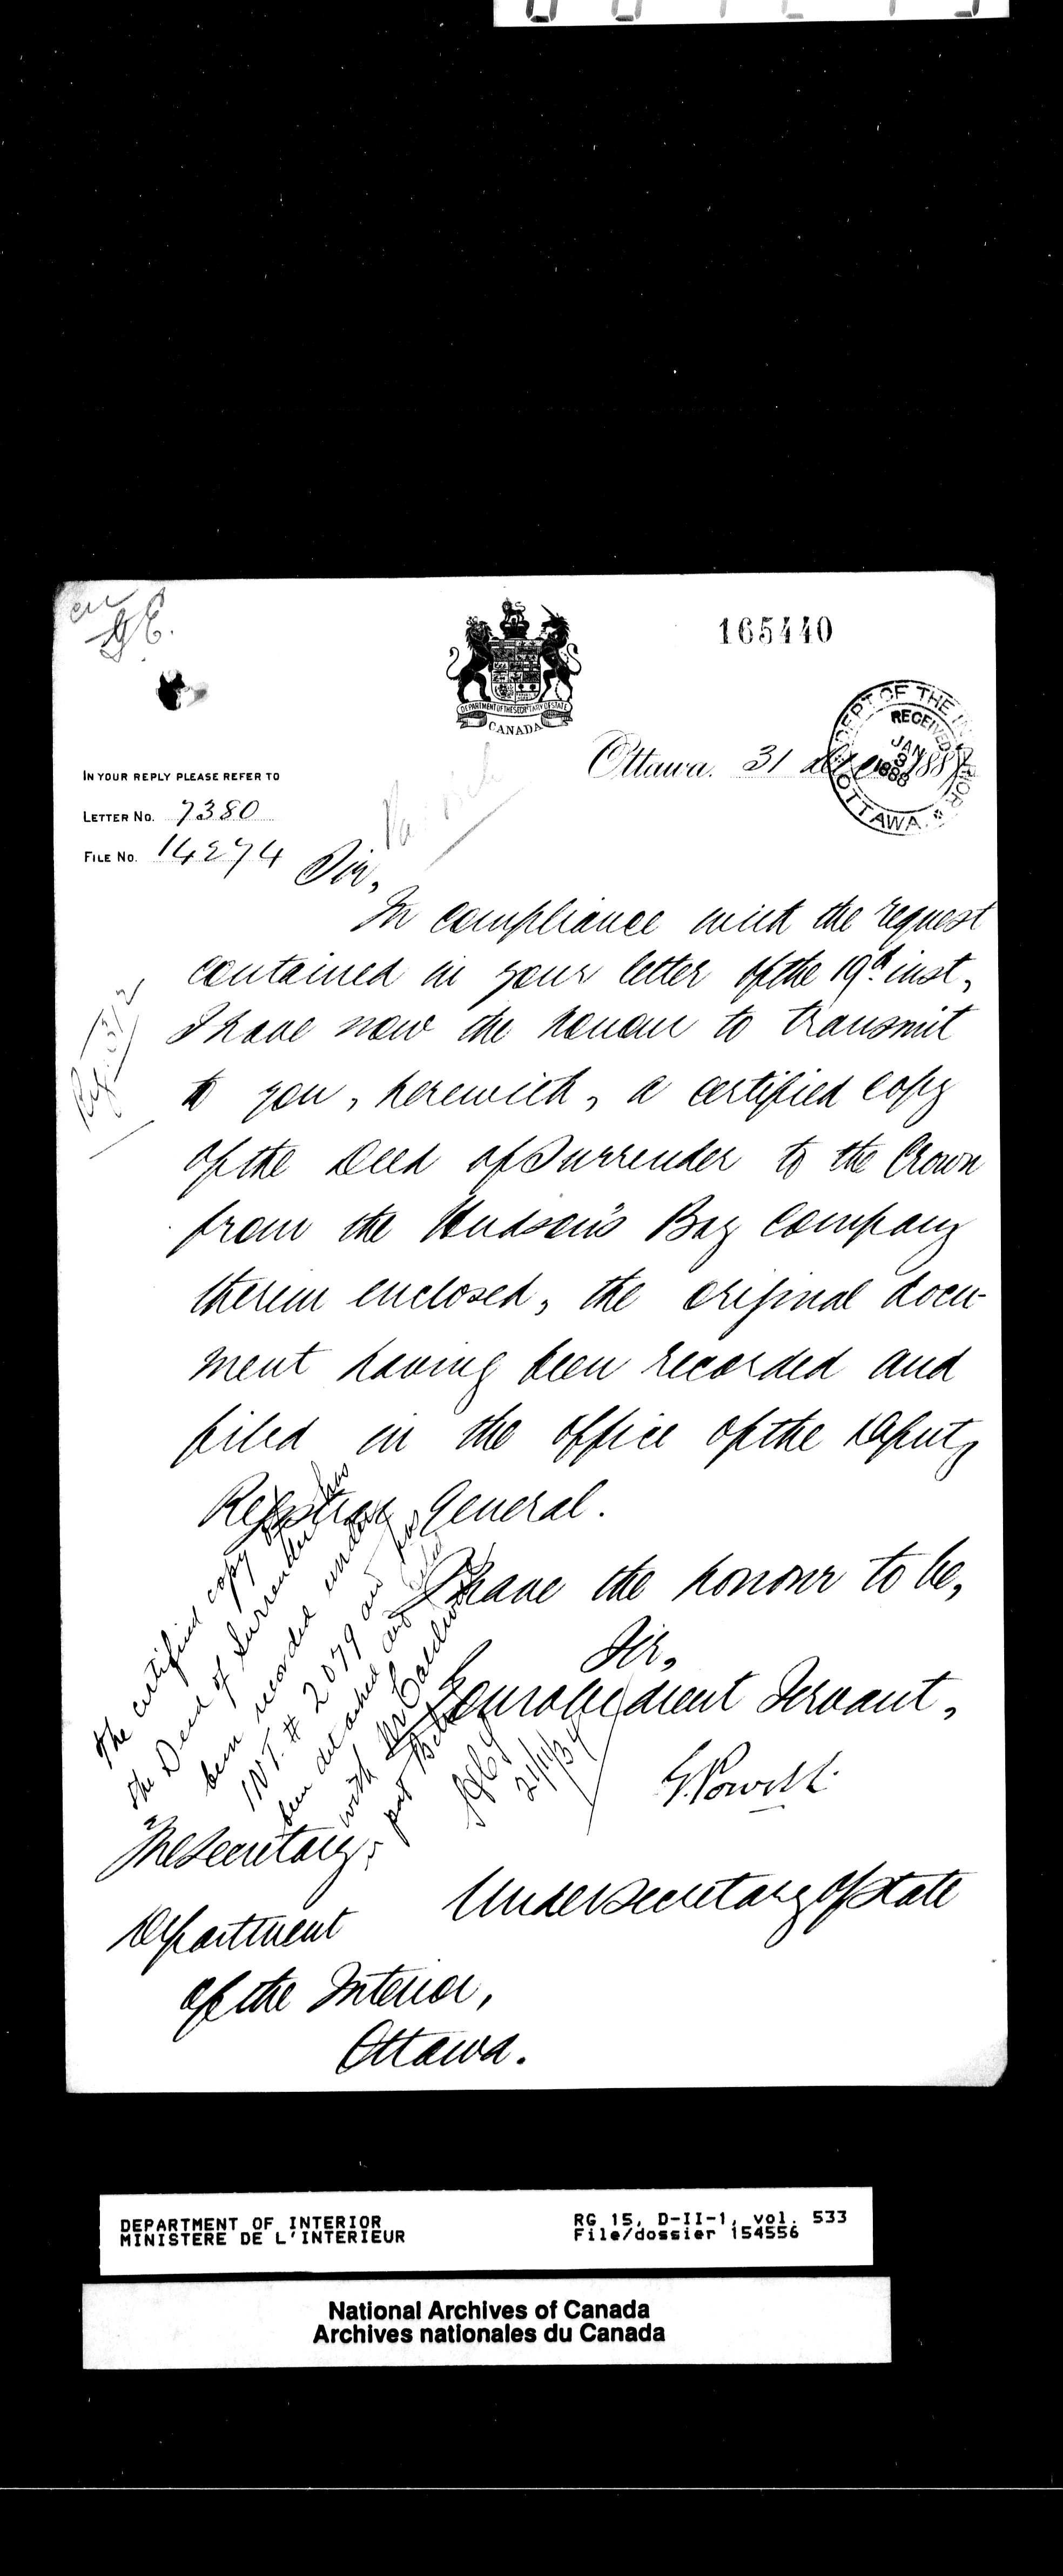 165440
DEPARTMENT OF THE SECRETARY OF STATE
CANADA
DEPT OF THE INTERIOR
RECEIVED
JAN 3 1888
OTTAWA.
Ottawa. 31 Dec 1887
IN YOUR REPLY PLEASE REFER TO
LETTER No. 7380
FILE No. 14274
Sir,
In compliance with the request
contained in your letter of the 19th inst,
I have now the honour to transmit
to you, herewith, a certified copy
of the Deed of Surrender to the Crown
from the Hudson's Bay Company
therein enclosed, the original docu-
ment having been recorded and
filed in the office of the Deputy
Registrar General.
I have the honour to be,
Sir,
Your obedient Servant,
G. Powell
Undersecretary of State
The Secretary,
Department
of the Interior,
Ottawa.
The certified copy of
the Deed of Surrender has
been recorded under
INT. # 2079 and has
been detached and
with Mr Caldwell
21/4/34
DEPARTMENT OF INTERIOR
MINISTERE DE L'INTERIEUR
RG 15, D-II-1, vol. 533
File/dossier 154556
National Archives of Canada
Archives nationales du Canada